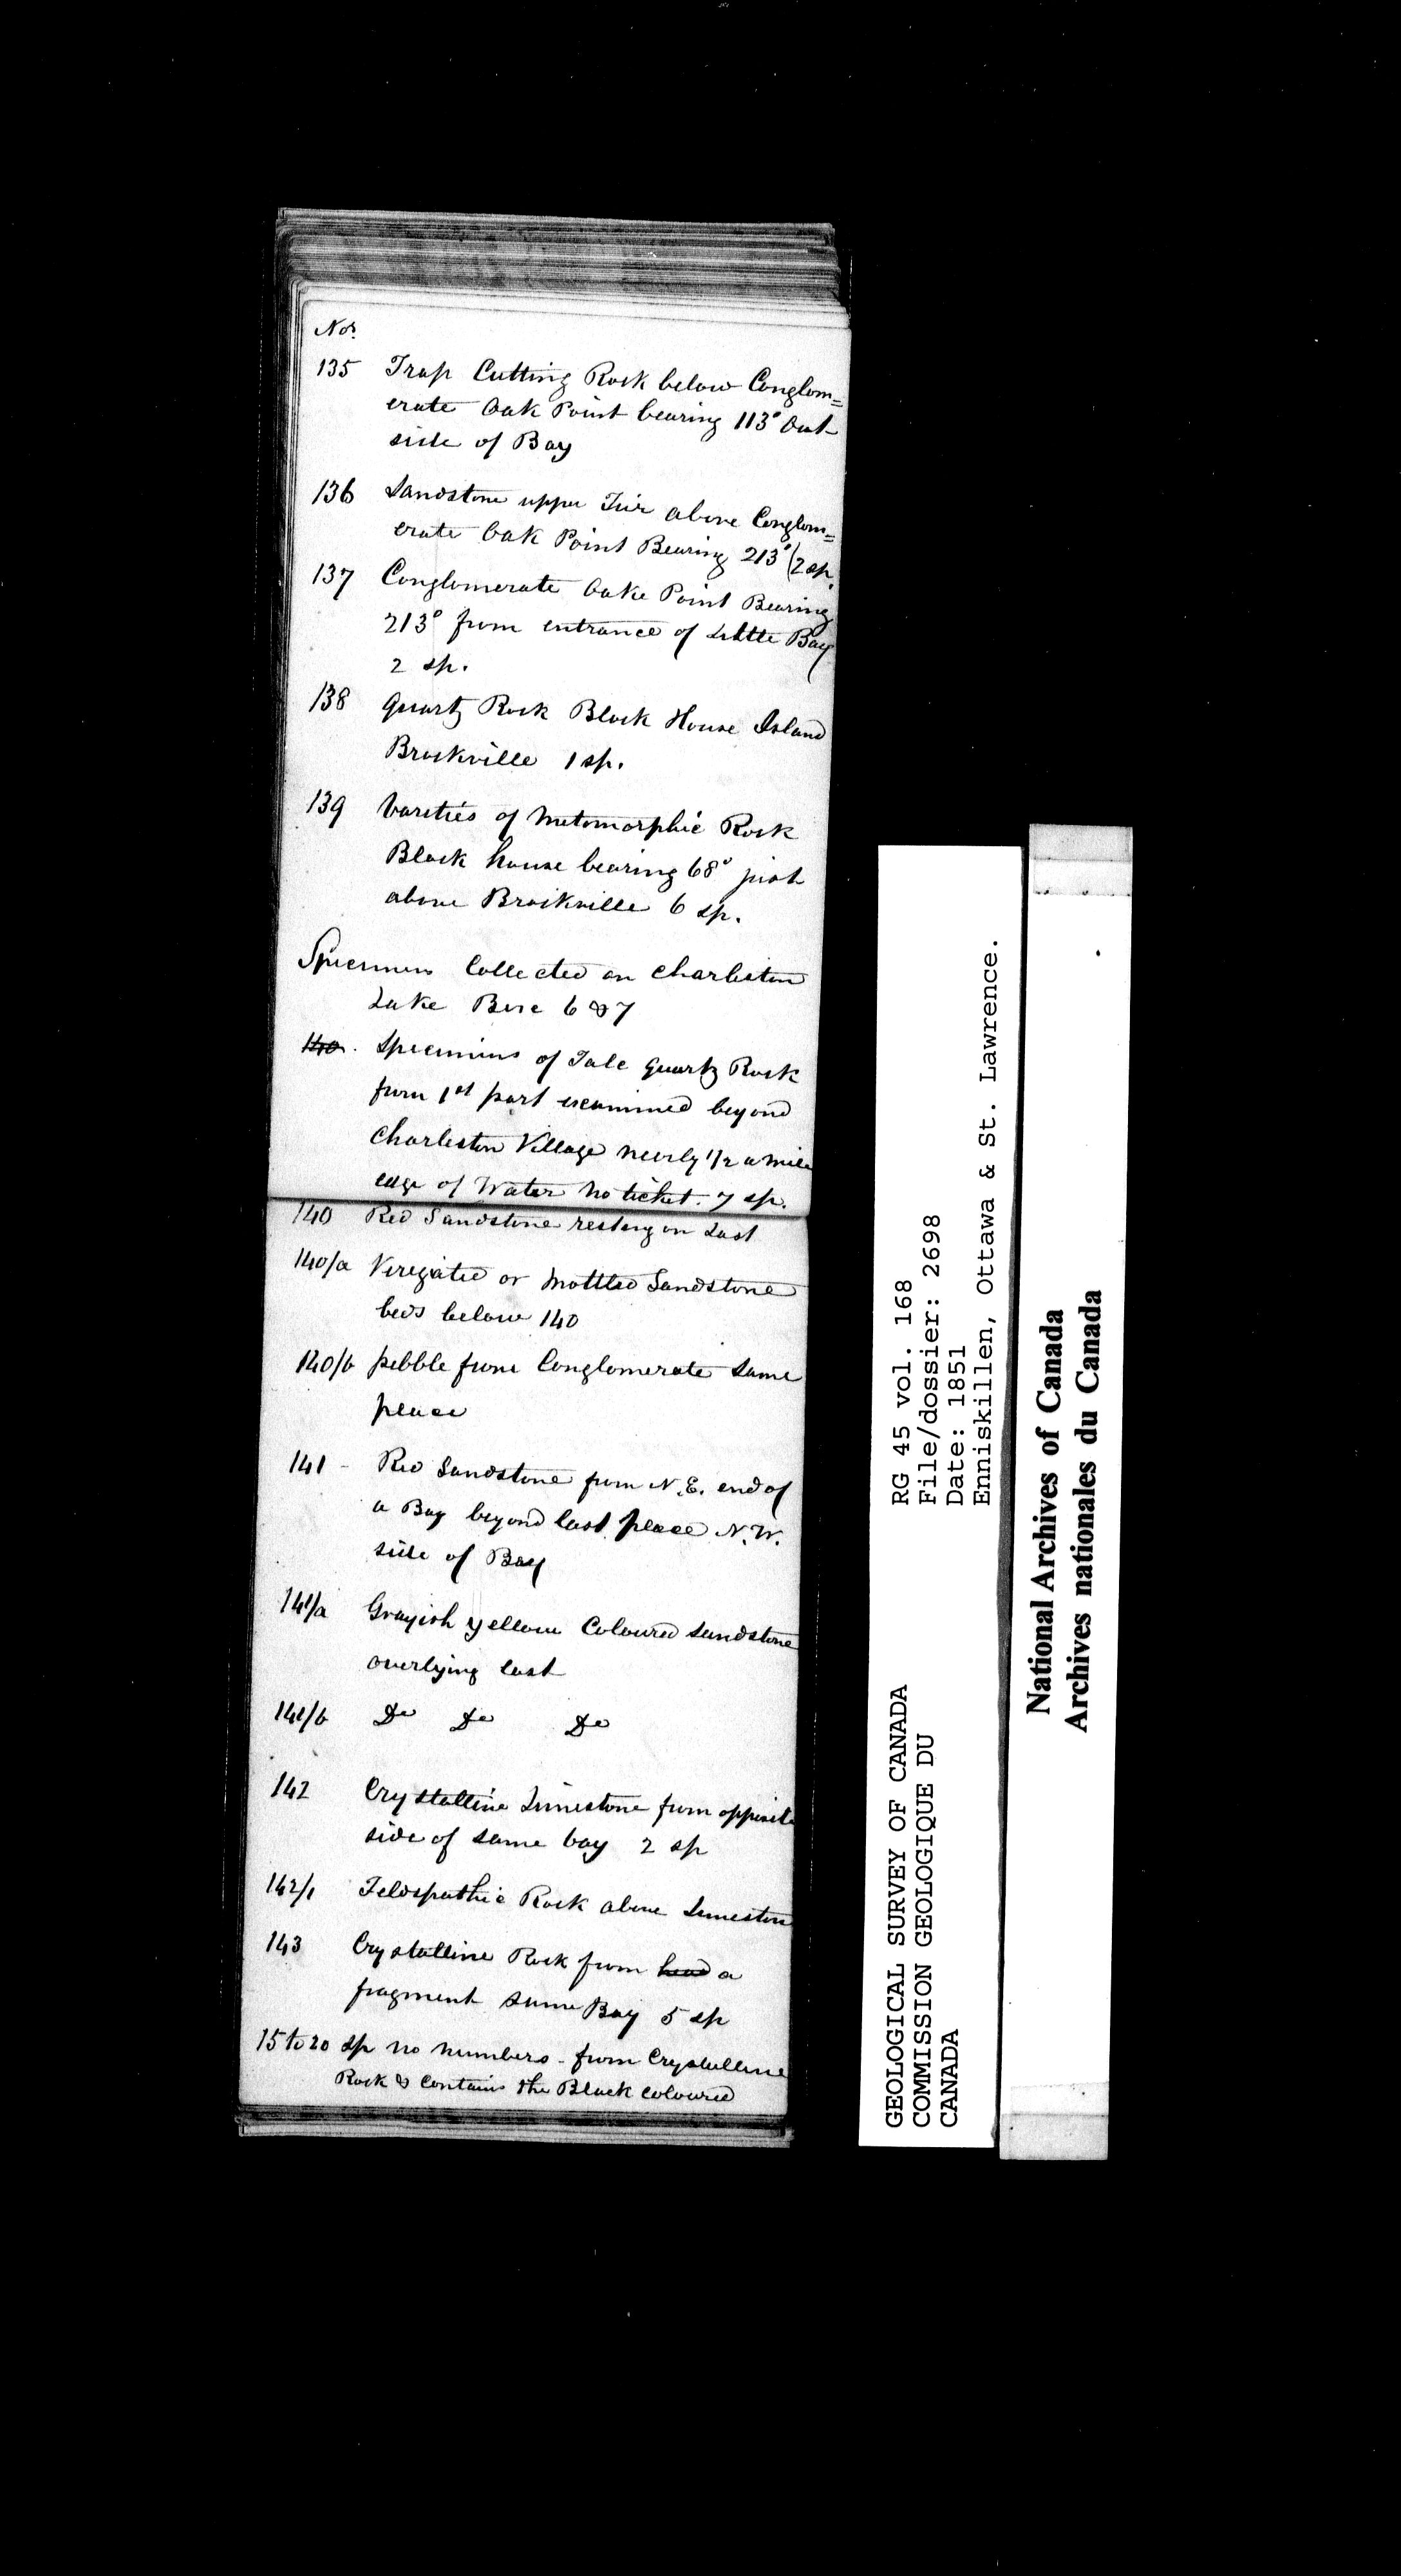 Nos.
135 Trap Cutting Rock below Conglom=
erate Oak Point bearing 113° Out
side of Bay
136 Sandstone upper Tier above Conglom=
erate Oak Point Bearing 213° (2 sp.
137 Conglomerate Oake Point Bearing
213° from entrance of Little Bay
2 sp.
138 Quartz Rock Block House Island
Brockville 1 sp.
139 Varities of Metomorphic Rock
Block house bearing 68° just
above Brockville 6 sp.
Specimens Collected on Charleston
Lake Boxe 6 & 7
140. Specimins of Talc Quartz Rock
from 1st part examined beyond
Charleston Village nearly 1/2 a mile
edge of Water no ticket. 7 sp.
140 Red Sandstone resting on Last
140/a Veregated or Mottled Sandstone
beds below 140
140/b pebble from Conglomerate Same
place
141 - Red Sandstone from N.E. end of
a Bay beyond last place N.W.
side of Bay
141/a Grayish Yellow Coloured Sandstone
overlying last
141/b Do Do Do
142 Crystalline Limestone from opposite
side of same bay 2 sp
142/1 Feldspathic Rock above Limestone
143 Crystalline Rock from head a
fragment same Bay 5 sp
15 to 20 sp no numbers - from Crystalline
Rock & Contains the Black coloured
GEOLOGICAL SURVEY OF CANADA
COMMISSION GEOLOGIQUE DU
CANADA
RG 45 vol. 168
File/dossier: 2698
Date: 1851
Enniskillen, Ottawa & St. Lawrence.
National Archives of Canada
Archives nationales du Canada